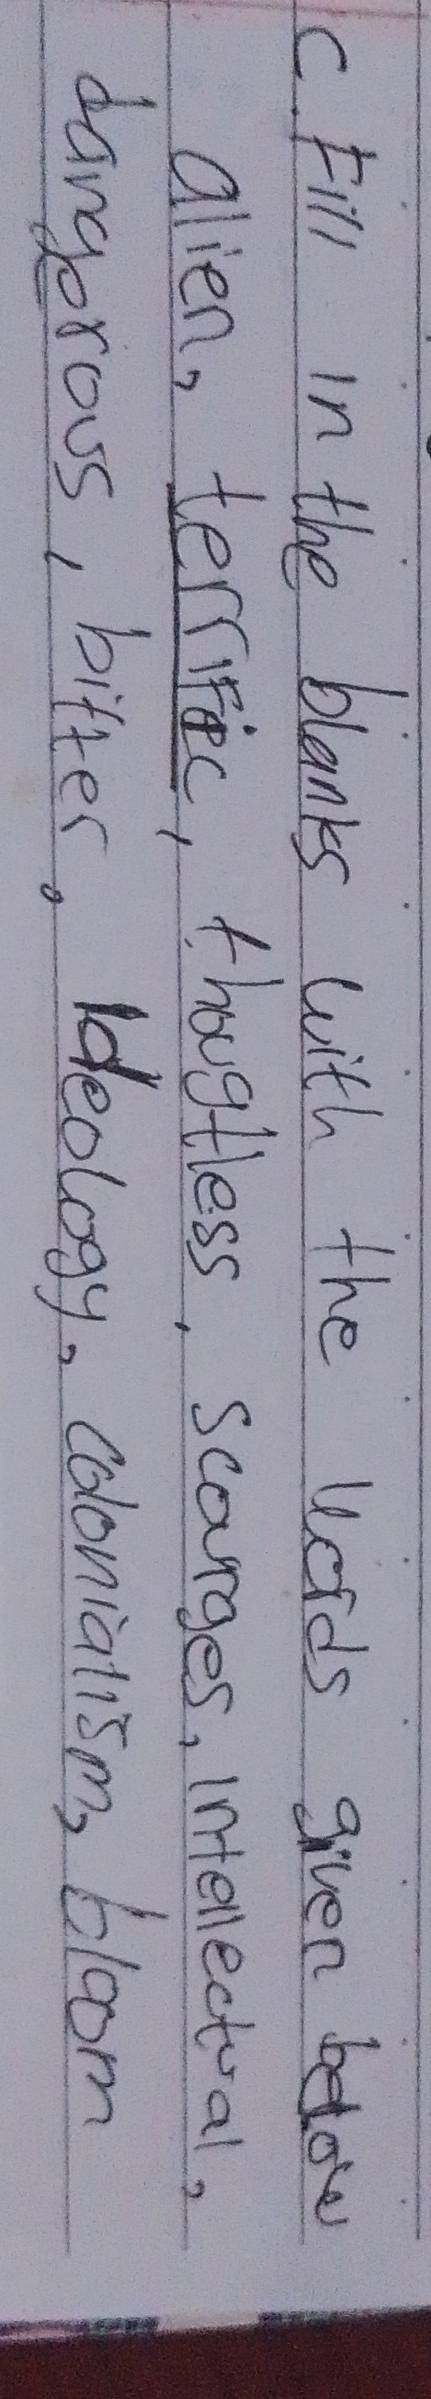 C. Fill in the blanks with the words given below
alien, terrific, thougtless, scourges, intellectual,
dangerous, bitter, Ideology, colonialism, bloom